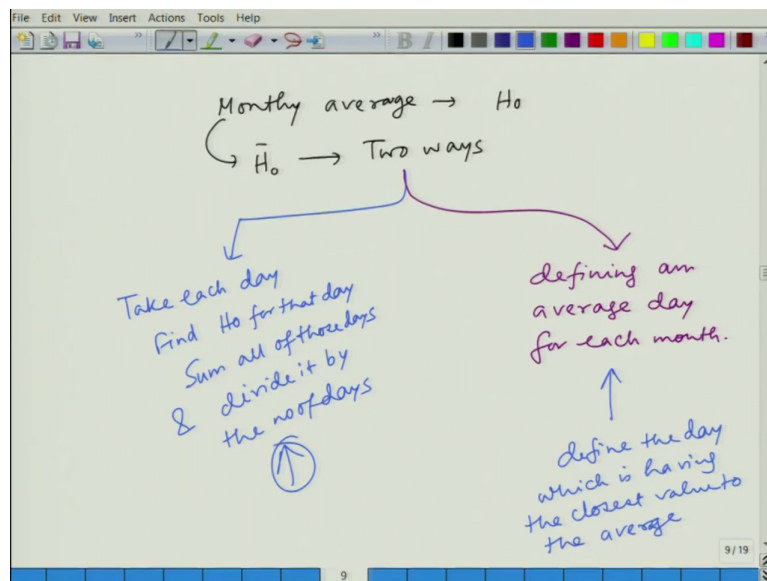 File Edit View Insert Actions Tools Help
B I
Monthy average → Ho
H̄o → Two ways
Take each day
find Ho for that day
Sum all of those days
& divide it by
the no of days
defining an
average day
for each month.
define the day
which is having
the closest value to
the average
9/19
9